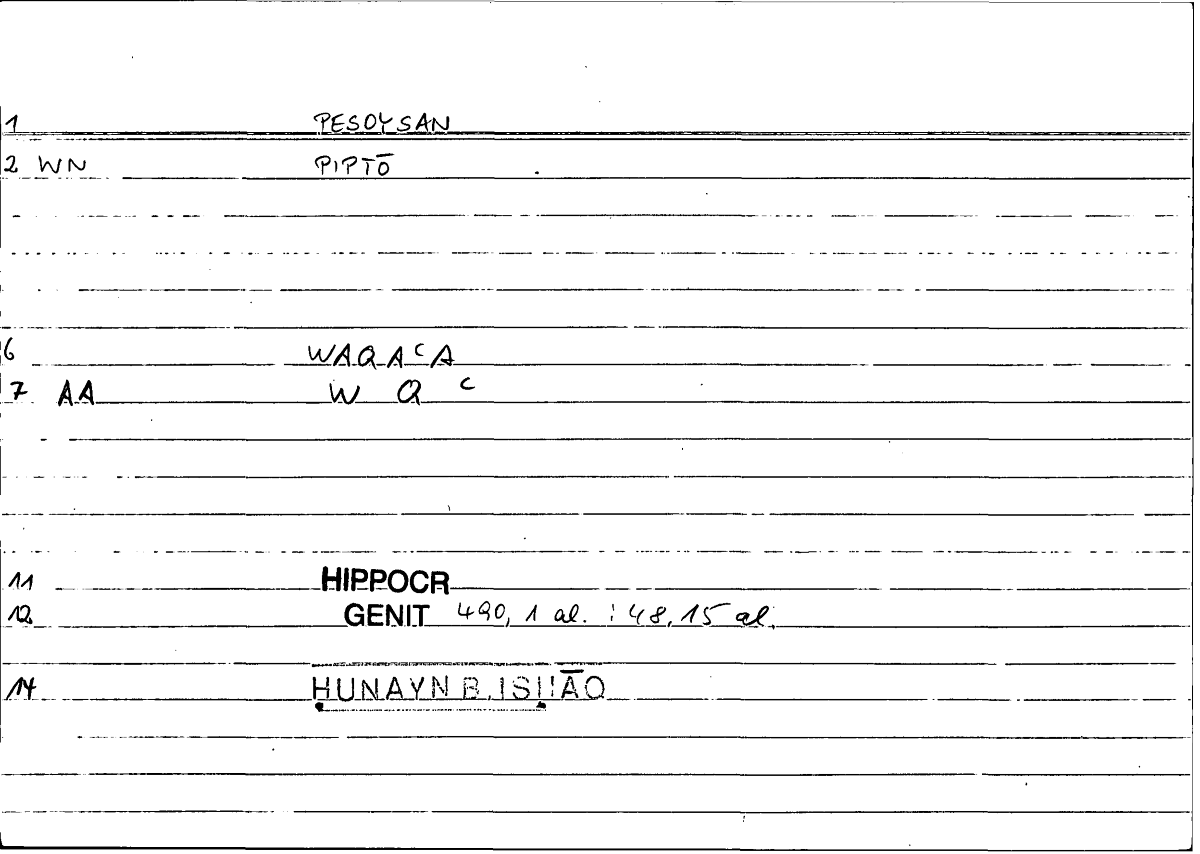 1 PESOYSAN
2 WN PIPTŌ
6 WAQAᶜA
7 AA W Q ᶜ
11 HIPPOCR
12 GENIT 490, 1 al. : 48, 15 al.
14 ḤUNAYN B. ISḤĀQ